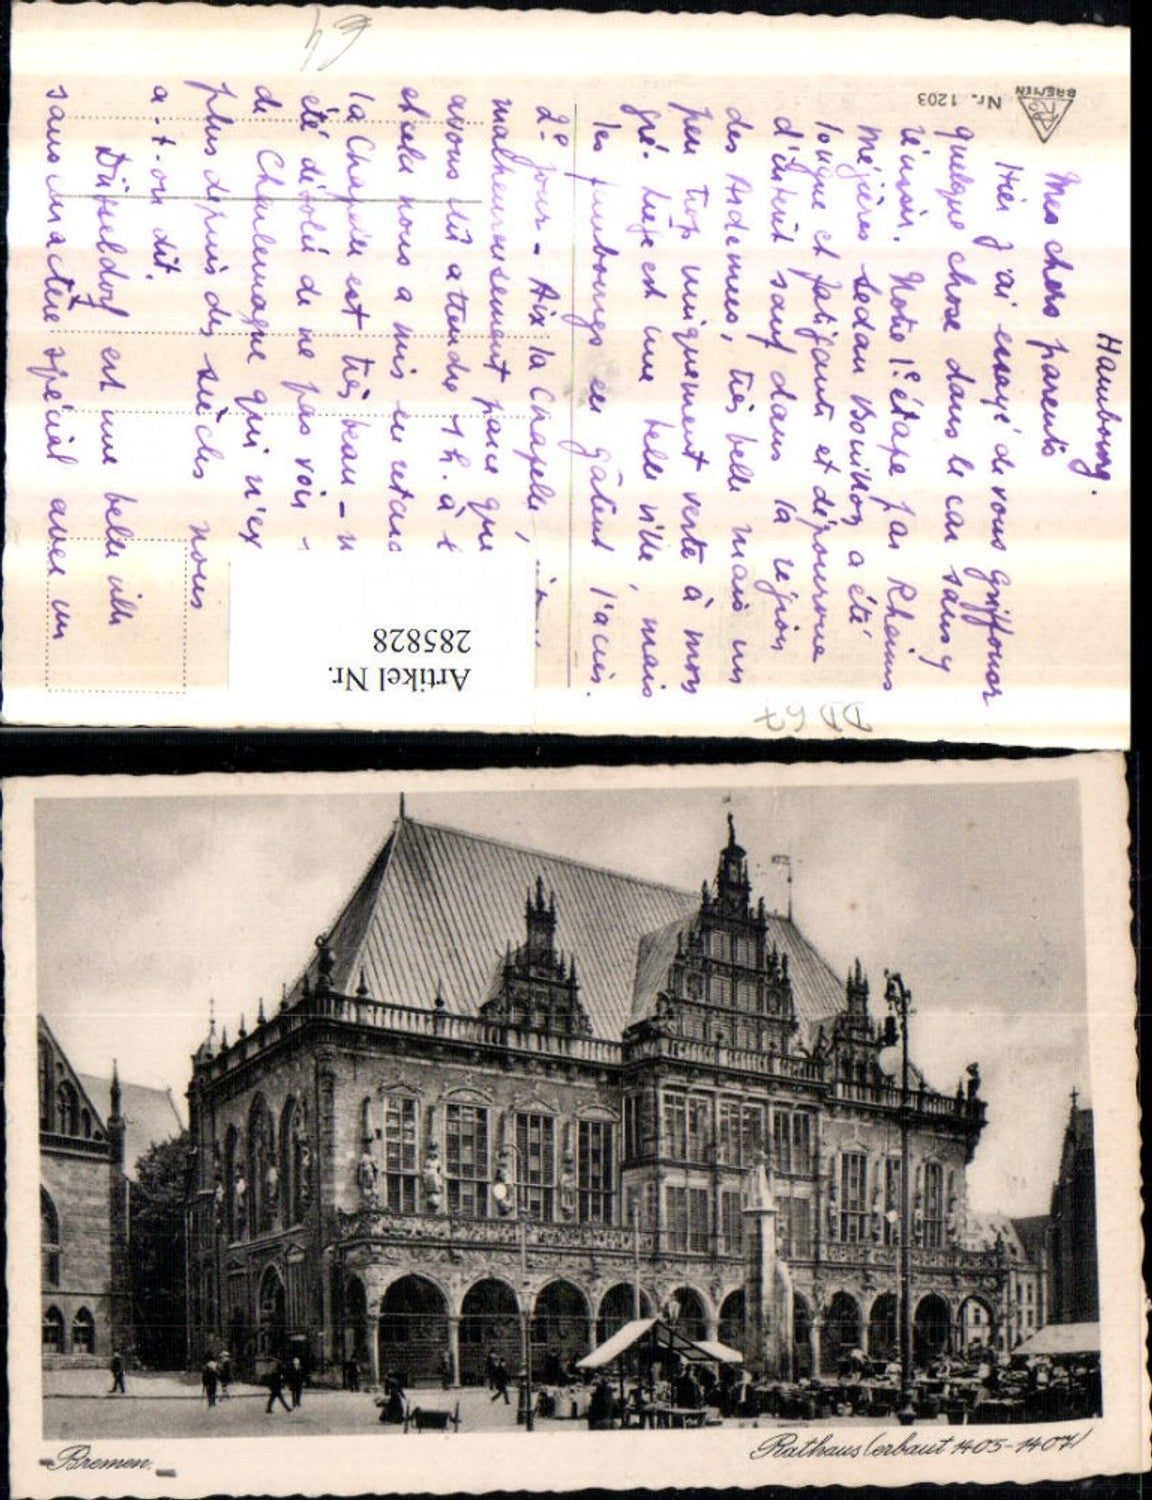 Hambourg.
Mes chers parents
Hier j'ai essayé de vous griffonner
quelque chose dans le car sans y
réussir. Notre 1e étape par Rheims
Méjières Sedan Bouillon a été
longue et fatigante et dépourvue
d'intérêt sauf dans la région
des Ardennes, très belle mais un
peu trop uniquement verte à mon
gré. Liège est une belle ville, mais
les faubourgs en gâtent l'accès.
2e jour - Aix la Chapelle,
malheureusement parce que
avons dû attendre 1 h. à
et cela nous a mis en retard
la Chapelle est très beau -
été désolé de ne pas voir
de Charlemagne qui n'ex
plus depuis des siècles nous
a-t-on dit.
Düsseldorf est une belle ville
sans caractère spécial avec un
Nr. 1203
BREMEN
Artikel Nr.
285828
DD67
€4
Bremen.
Rathaus (erbaut 1405-1407)